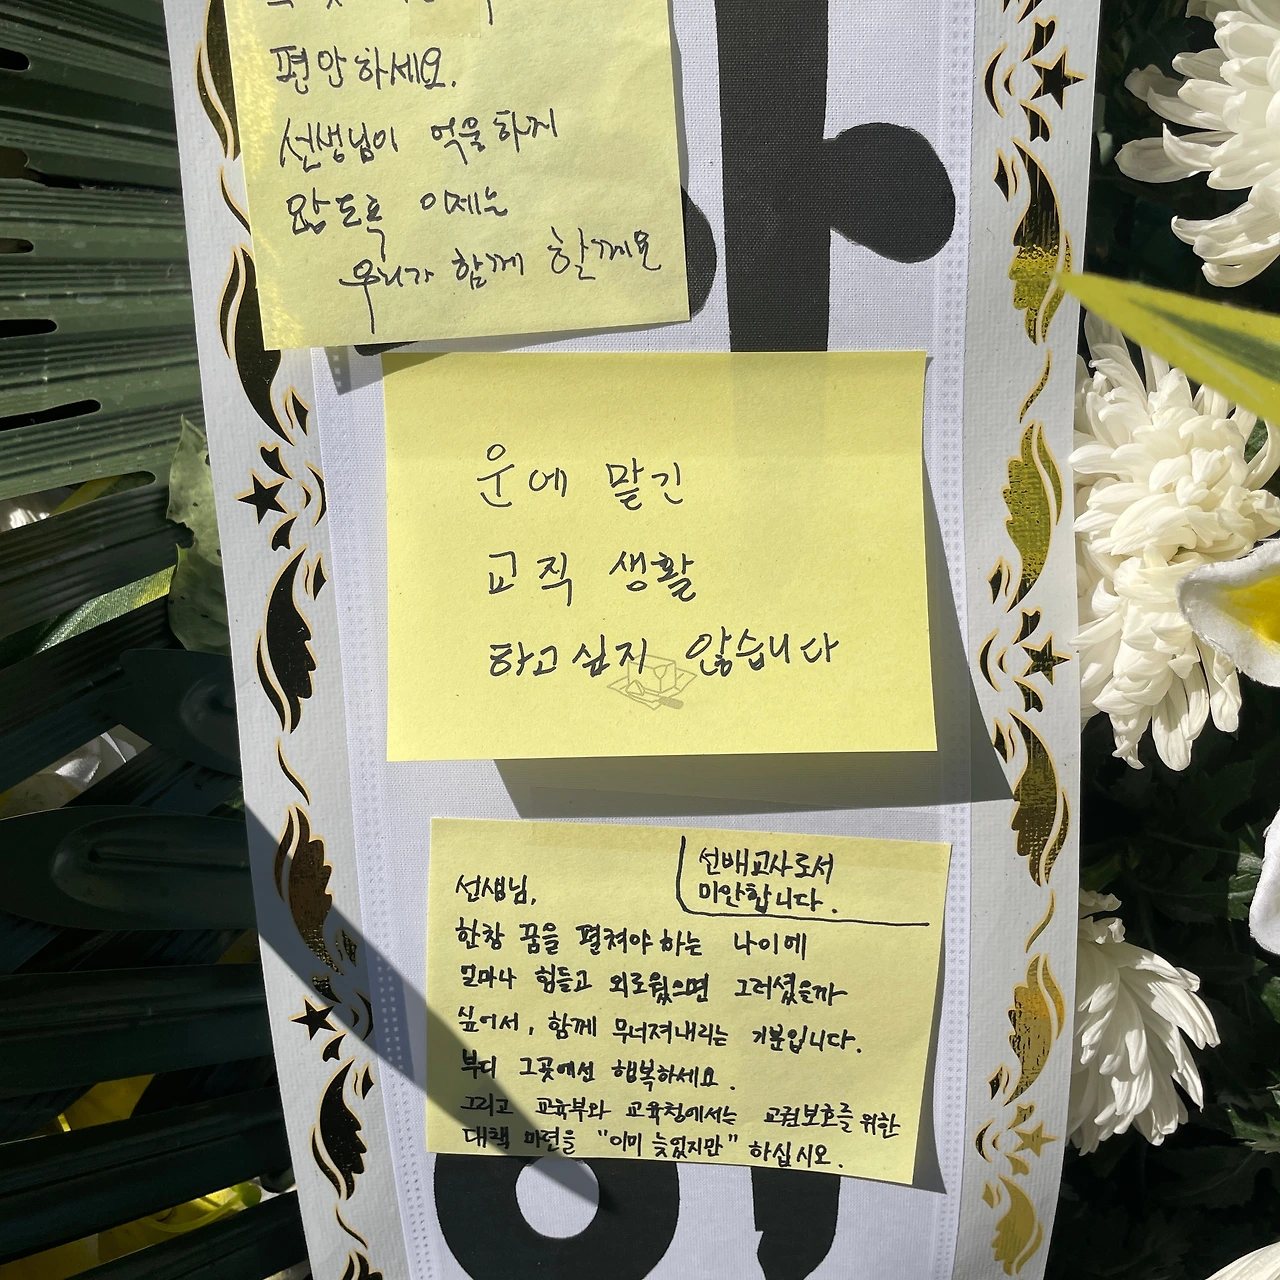 편안하세요.
선생님이 억울하게
않도록 이제는
우리가 함께 할께요
운에 맡긴
교직 생활
하고싶지 않습니다
선배교사로서
미안합니다.
선생님,
한창 꿈을 펼쳐야 하는 나이에
얼마나 힘들고 외로웠으면 그러셨을까
싶어서, 함께 무너져내리는 기분입니다.
부디 그곳에선 행복하세요.
그리고 교육부와 교육청에서는 교권보호를 위한
대책 마련을 "이미 늦었지만" 하십시오.